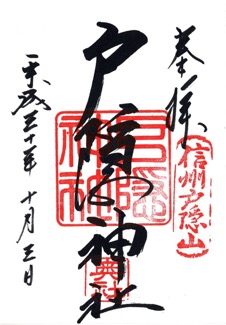 奉拝
信州戸隠山
戸隠神社
奥社
平成三十年十月三日